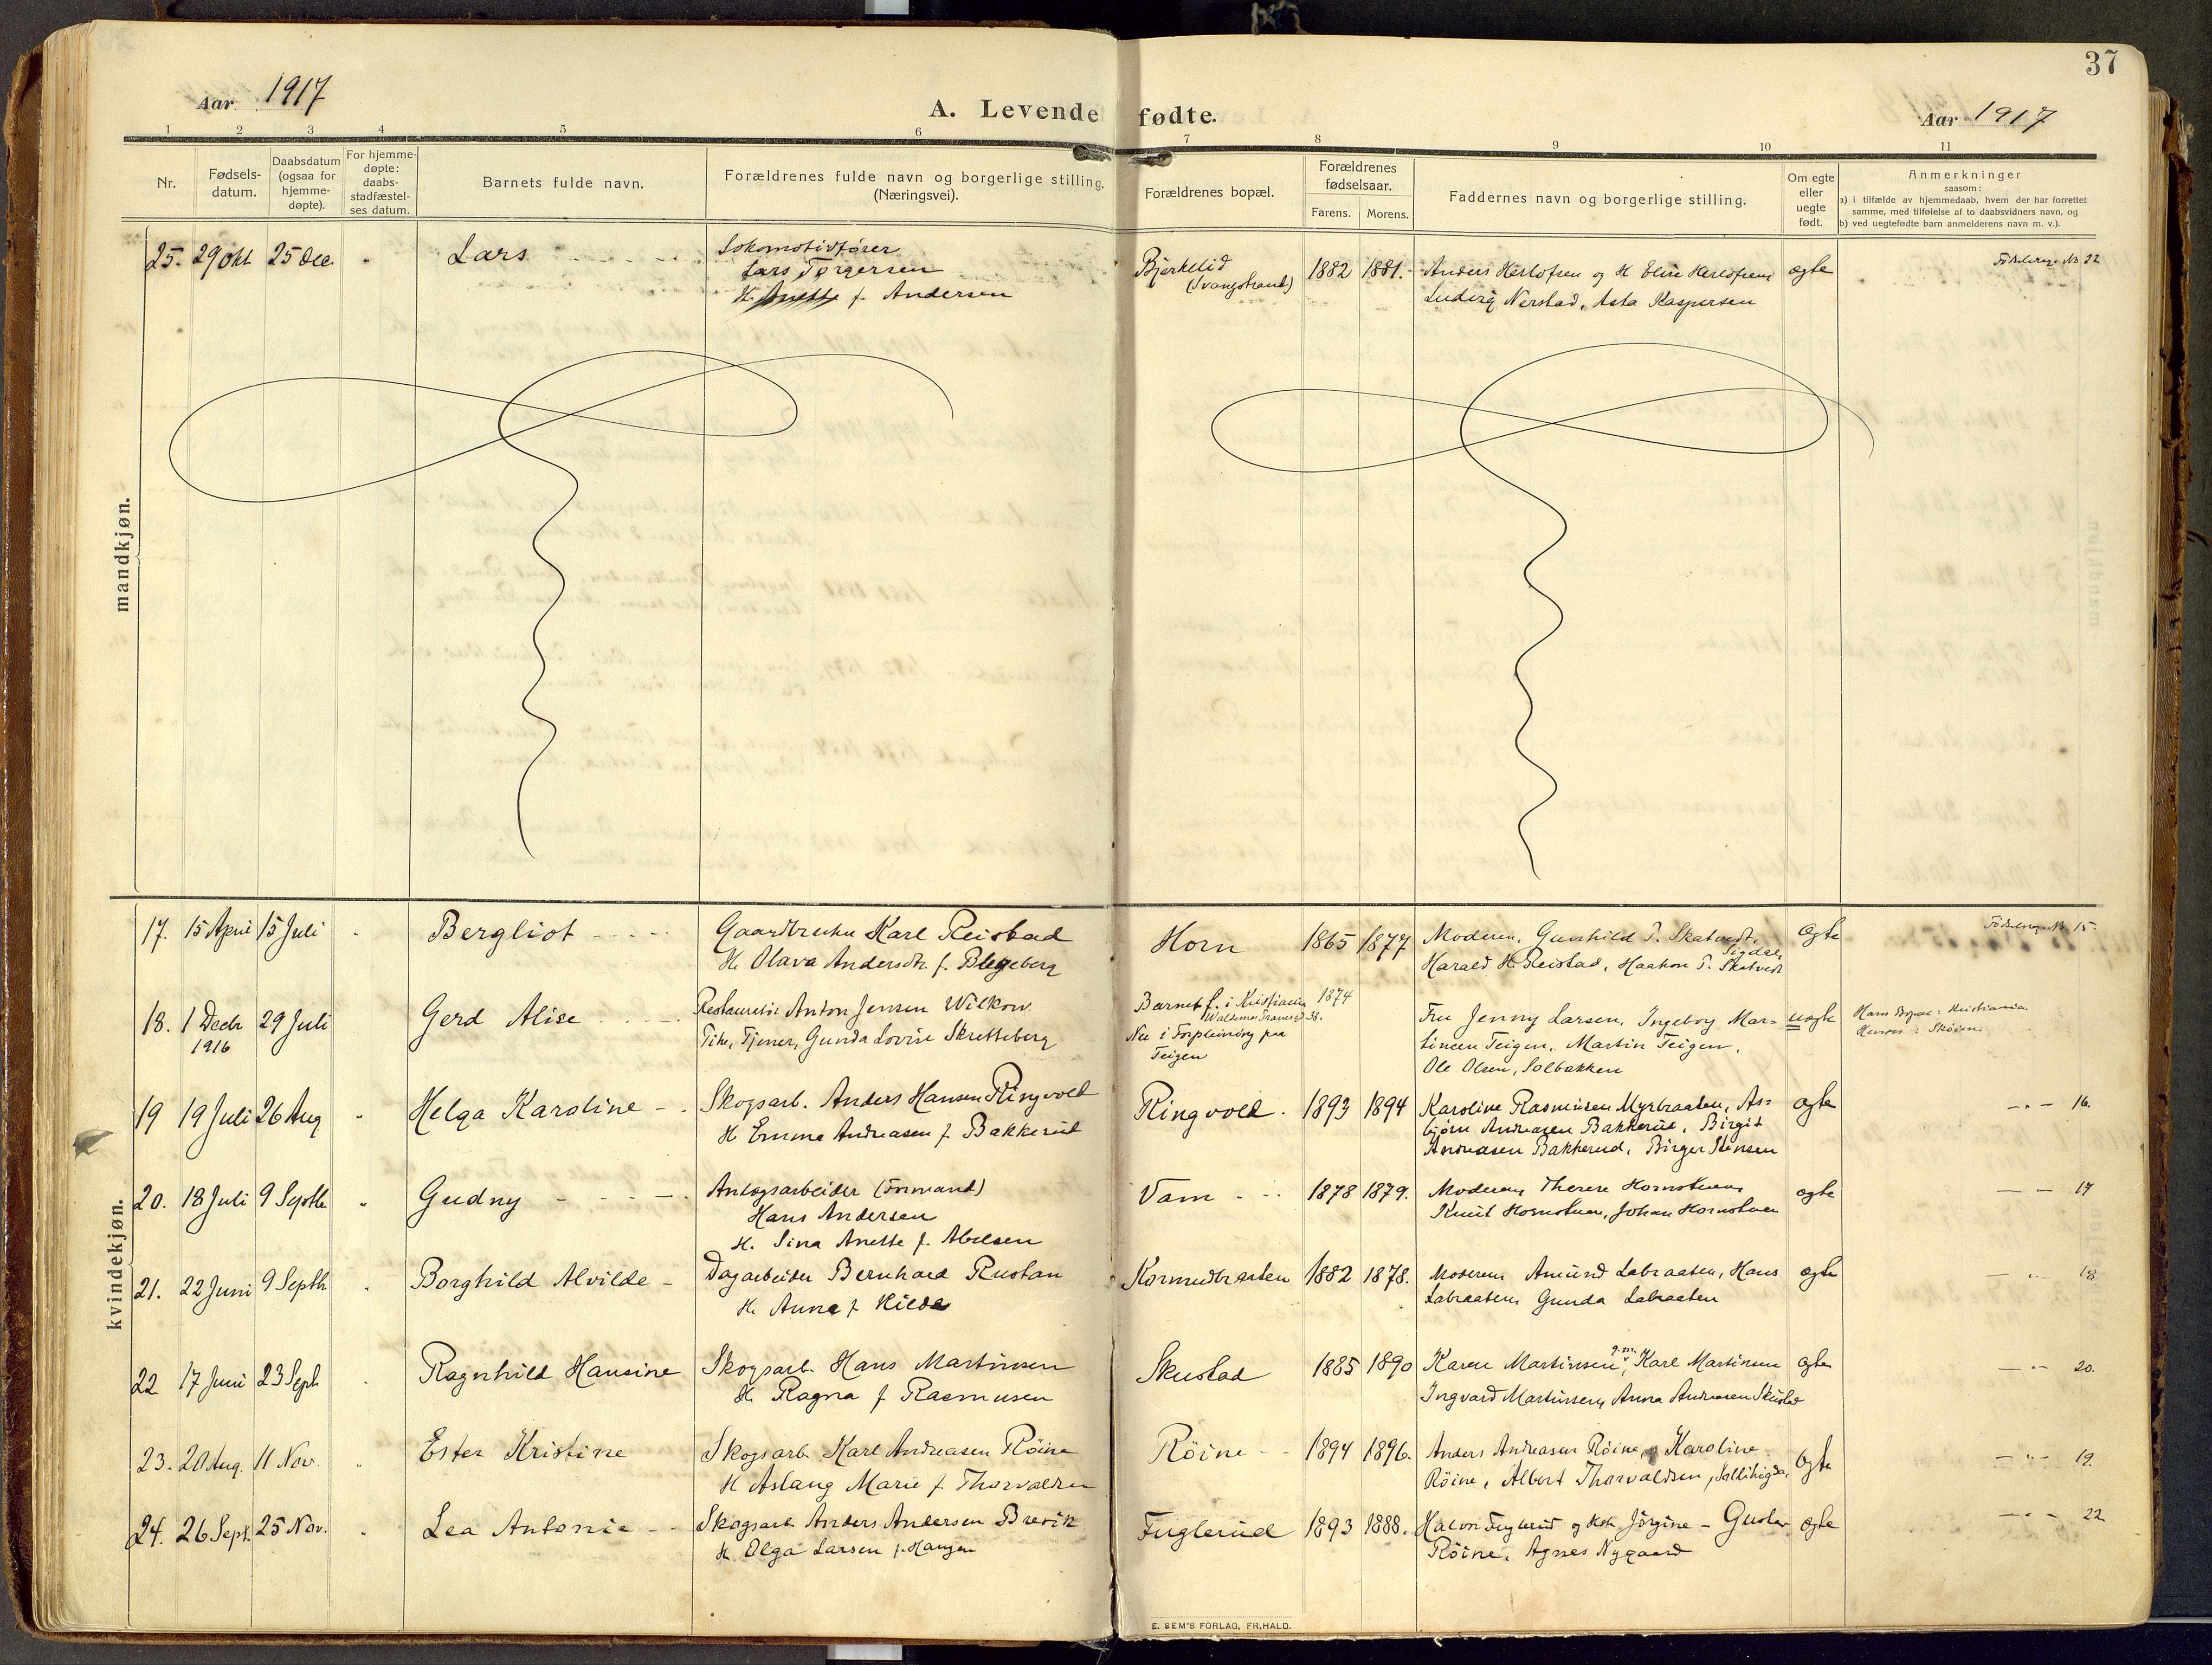 37
Aar 1917
A. Levende fødte.
Aar 1917
1 2 3 4 5 6 7 8 9 10 11
Nr.
Fødsels-
datum.
Daabsdatum
(ogsaa for
hjemme-
døpte).
For hjemme-
døpte:
daabs-
stadfæstel-
ses datum.
Barnets fulde navn.
Forældrenes fulde navn og borgerlige stilling.
(Næringsvei).
Forældrenes bopæl.
Forældrenes
fødselsaar.
Farens. Morens.
Faddernes navn og borgerlige stilling.
Om egte
eller
uegte
født.
Anmerkninger
saasom:
a) i tilfælde av hjemmedaab, hvem der har forrettet
samme, med tilføielse af to daabsvidners navn, og
b) ved uegtefødte barn anmelderens navn m. v.).
mandkjøn.
25. 29 Okt 25 Dec. " Lars
Lokomotivfører
Lars Torgersen
H. Anette f. Andersen
Bjerkelid
(Svangstrand)
1882 1881.
Anders Herlofsen og H Elise Herlofsen
Ludvig Nerstad, Asta Kaspersen
egte
No 22
kvindekjøn.
17. 15 April 15 Juli Bergliot
Gaardbruker Karl Reistad
H. Olava Andersdtr. f. Blegeberg
Horn 1865 1877
Moderen, Gunhild T. Skatvedt, Sigdal,
Harald H. Reistad, Haakon T. Skatvedt
egte
No 15.
18. 1 Decbr 29 Juli Gerd Alise
1916
Restauratør Anton Jensen Wilkow
Pike, Tjener, Gunda Lovise Skretteberg
Barnet f. i Kristiania 1874
Nu i Forpleining paa
Teigen
Fru Jenny Larsen, Ingeborg Mar-
tineen Teigen, Martin Teigen,
Ole Olsen, Solbakken
uegte
Hans Bopæl: Kristiania
Hennes: Skoien
19 19 Juli 26 Aug " Helga Karoline
Skogsarb. Anders Hansen Ringvold
H Emma Andreasen f. Bakkerud
Ringvold. 1893 1894
Karoline Rasmussen Myrbraaten, As-
bjørn Andreasen Bakkerud, Birgit
Andreasen Bakkerud, Birger Stensen
egte
— " — 16.
20. 18 Juli 9 Septbr " Gudny
Anlægsarbeider (Formand)
Hans Andersen
H. Lina Anette f. Abelsen
Vam 1878 1879.
Moderen, Therese Hornstuen,
Knut Hornstuen, Johan Hornstuen
egte
— — 17
21. 22 Juni 9 Septbr Borghild Alvilde
Dagarbeider Bernhard Rustan
H. Anna f Kilde
Kormedbraaten 1882 1878.
Moderen Amund Labraaten, Hans
Labraaten, Gunda Labraaten
egte
— " — 18
22 17 Juni 23 Sept. Ragnhild Hansine
Skogsarb. Hans Martinsen
H. Ragna f Rasmussen
Skustad 1885 1890
Karen Martinsen, g.m. Karl Martinsen
Ingvard Martinsen, Anna Andreasen Skustad
egte
— " — 20.
23. 20 Aug. 11 Nov. Ester Kristine
Skogsarb. Karl Andreasen Röine
H Aslaug Marie f. Thorvaldsen
Röine 1894 1896.
Anders Andreasen Röine, Karoline
Röine, Albert Thorvaldsen,
egte
— " — 19.
24. 26 Sept. 25 Nov. Lea Antonie
Skogsarb. Anders Andersen Brevik
H. Olga Larsen f. Haugen
Fuglerud 1893 1888.
Halvor Fuglerud og Jörgine - Gustav
Röine, Agnes Nygaard
egte
— " — 22
E. SEM'S FORLAG, FR.HALD.